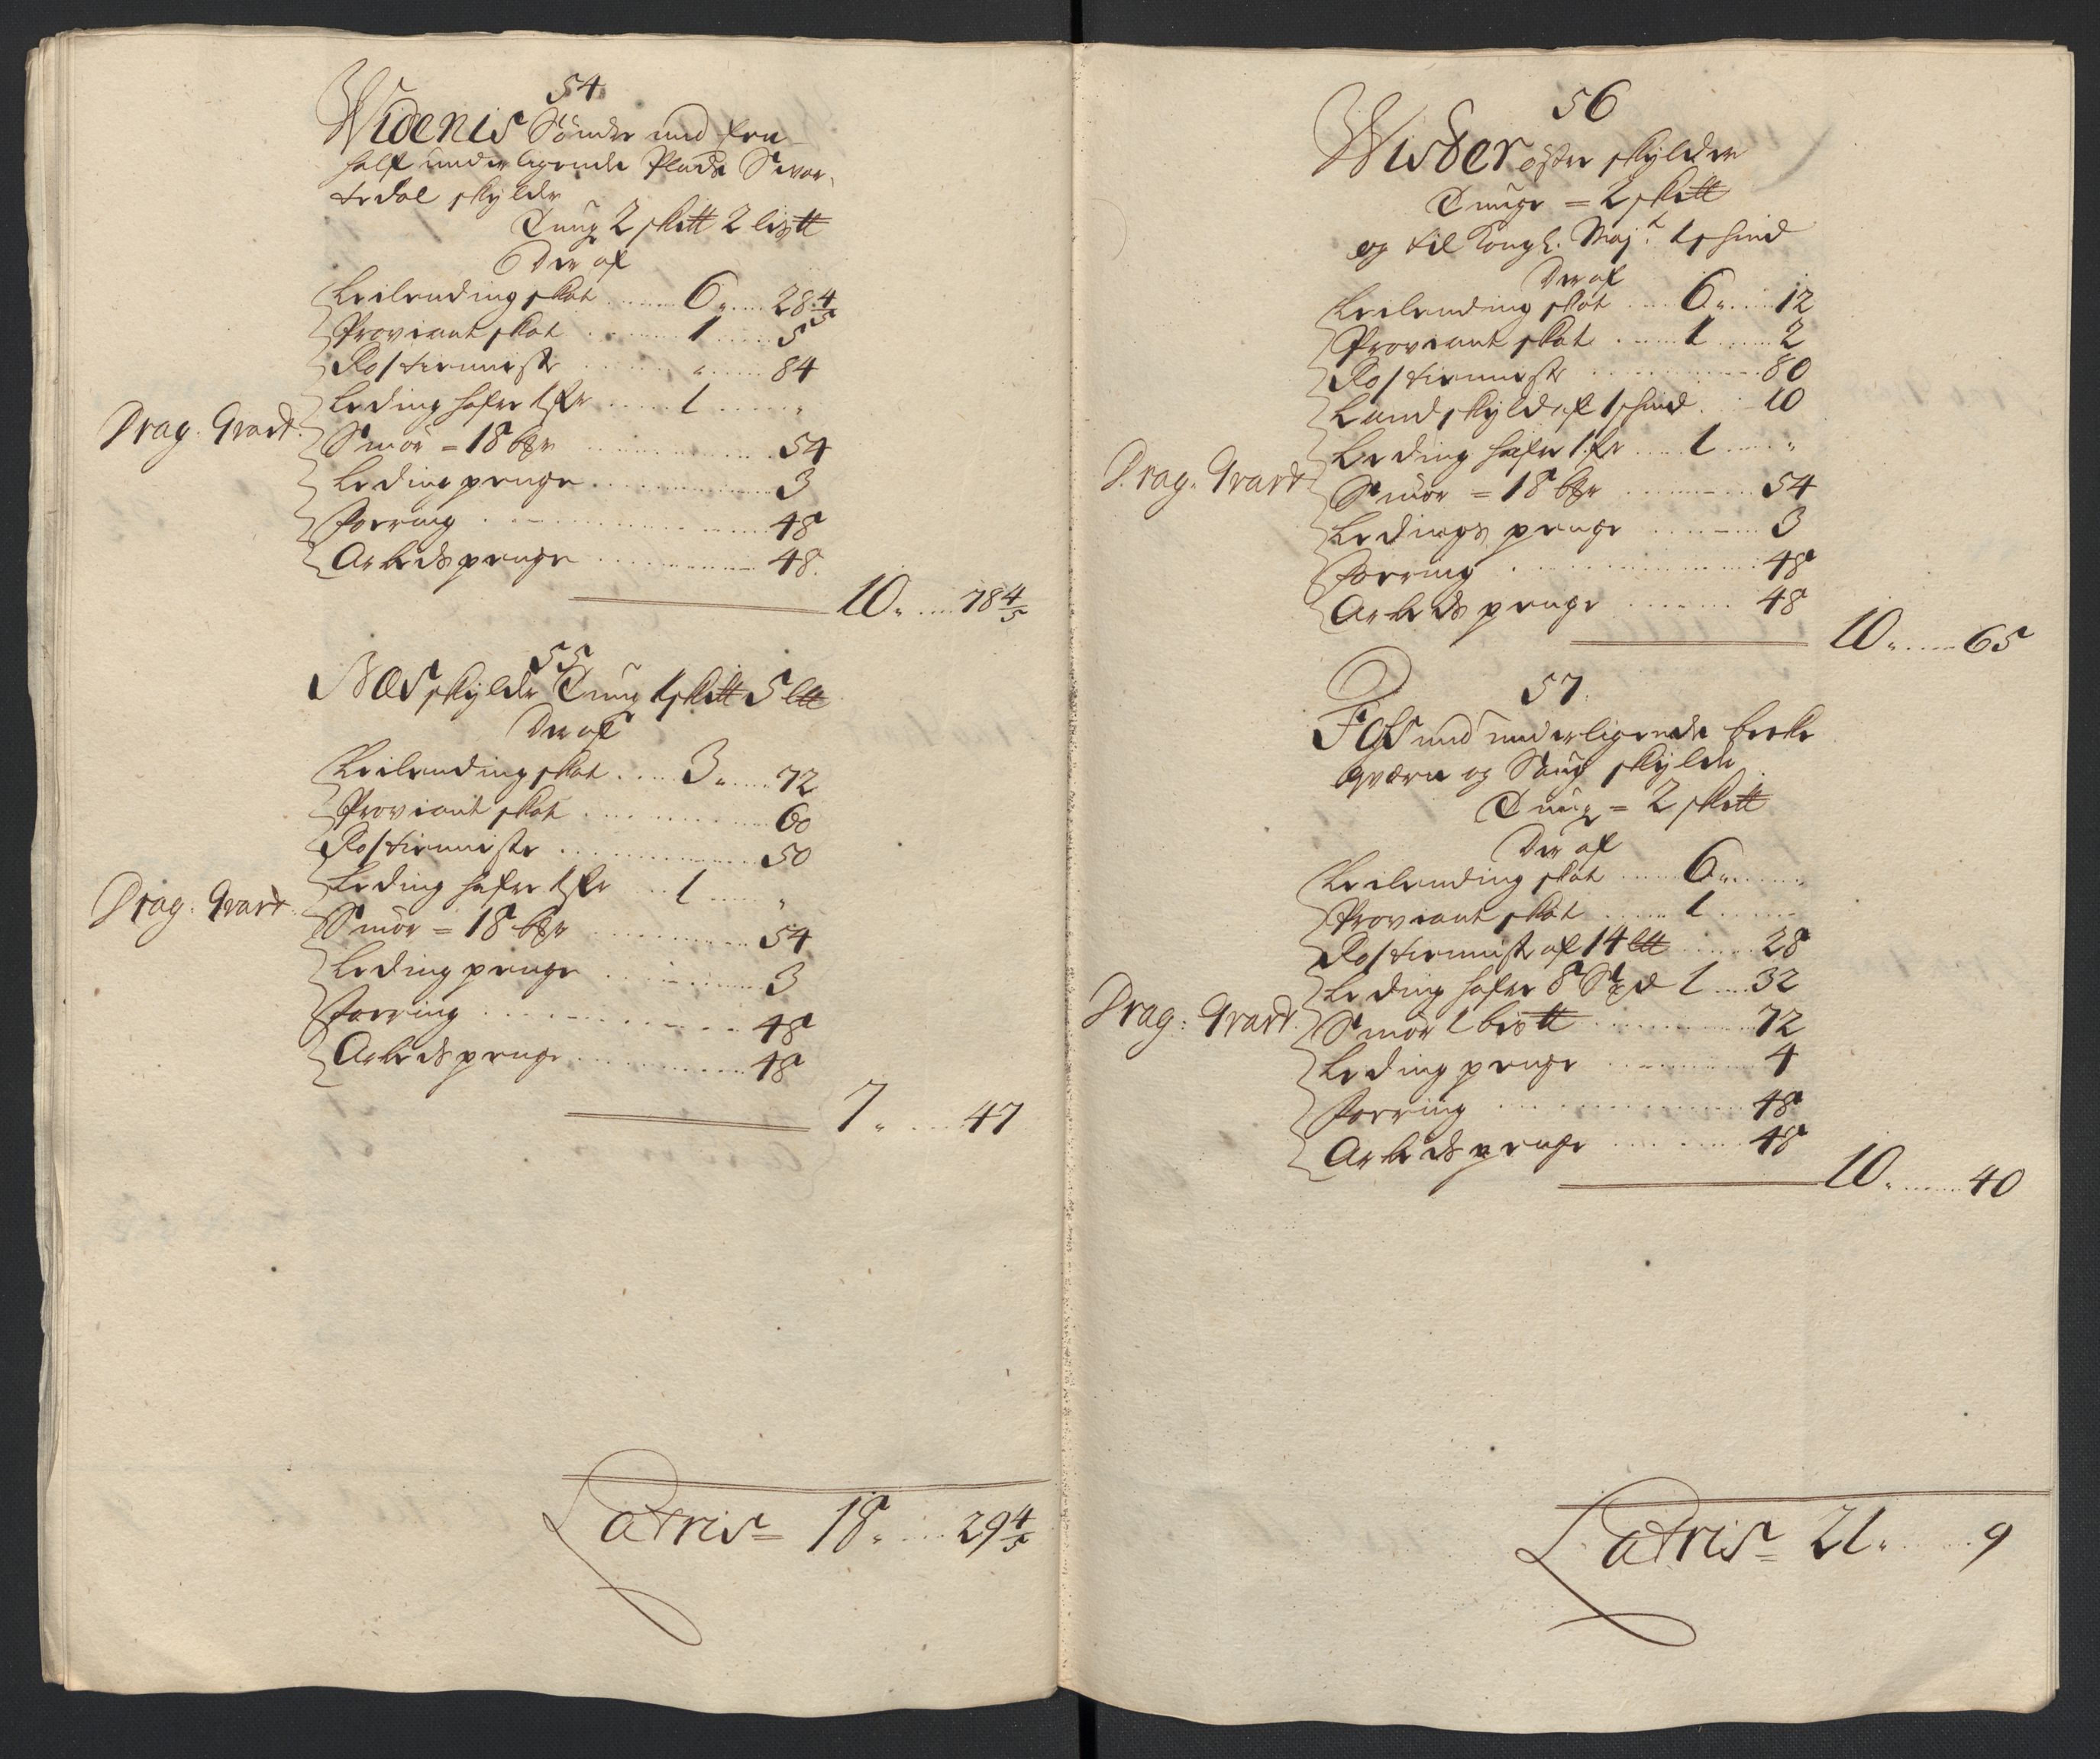 54
Widenis Söndre med fru
half underligende Plads Swar-
tedal skylder
Tung 2 sk℔ 2 lis℔
Der af
Leilending skat 6 28 4/5
Proviant skat 1 5
Rostienniste 84
Leding hafre 1 fr 1
Drag. Qvart.
Smör = 18 bgr 54
Leding penge 3
Foering 48
Arbeds penge 48
10 78 4/5
55
Næs skylder Tung 1 sk℔ 5 l℔
Der af
Leilending skat 3 72
Proviant skat 60
Rostienniste 50
Leding hafre 1 fr 1
Drag. Qvart.
Smör = 18 bgr 54
Leding penge 3
Foering 48
Arbeds penge 48
7 47
Latris 18 29 4/5
56
Wister östre skylder
Tunge = 2 sk℔
og til Kongl. Majt. 1 shind
Der af
Leilending skat 6 12
Proviant skat 1 2
Rostienniste 80
Landskyld af 1 shind 10
Leding hafre 1 fr 1
Drag. Qvart
Smör = 18 bgr 54
Ledings penge 3
Foering 48
Arbeds penge 48
10 65
57.
Fos med underligende becke
qværn og Saug skylder
Tung = 2 sk℔
Der af
Leilending skat 6
Proviant skat 1
Rostienniste af 14 l℔ 28
Leding hafre 8 1 32
Drag. Qvart.
Smör 1 bis℔ 72
Leding penge 4
Foering 48
Arbeds penge 48
10 40
Latris 21 9